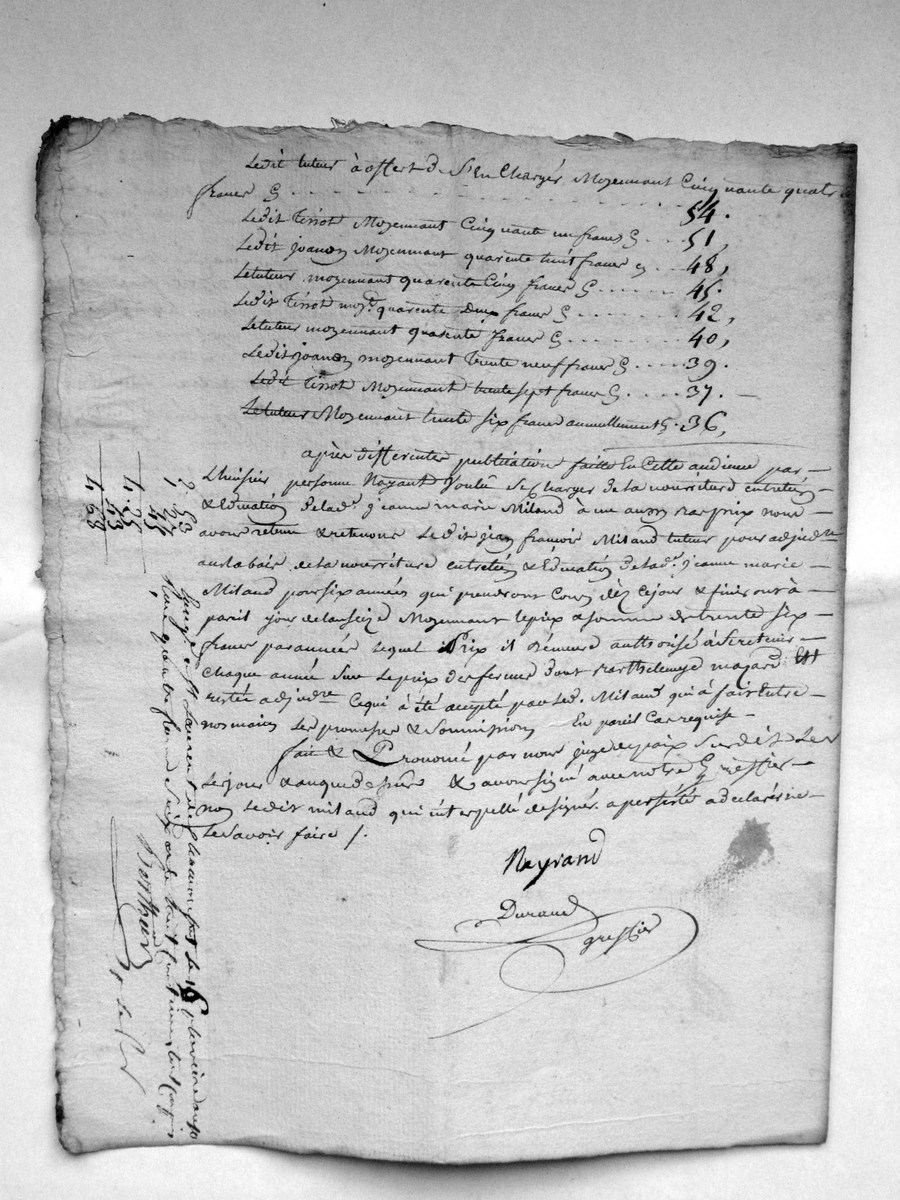 Ledit tuteur à offert de s'en Charger Moyennant Cinquante quatre
francs Cy . . . . . . . . . . 54.
Ledit Tissot Moyennant Cinquante un francs Cy . . . 51,
Ledit joanon Moyennant quarente huit francs Cy . . . 48,
Le tuteur moyennant quarente Cinq francs Cy . . . . . . 45.
Ledit Tissot moyt. quarente Deux francs Cy . . . . . . 42,
Le tuteur moyennant quarente francs Cy . . . . . . 40,
Ledit joanon moyennant Trente neuf francs Cy . . . . . 39.
Ledit Tissot Moyennant trente sept francs Cy . . . . 37. —
Le tuteur Moyennant trente six francs annuellement Cy . 36,
après differentes publications faites En Cette audience par —
L'huissier personne Nayant Voulu se Charger de la nourriture entretien
& Education de lad. jeanne marie Miland à un aussy bas prix nous
avons retenu & retenons Ledit jean françois Miland tuteur pour adjudre
au rabais de la nourriture entretien & Education de lad. jeanne marie —
Miland pour six années qui prendront Cours dès Ce jour & finiront à —
pareil jour de lan seize Moyennant le prix & somme de trente six —
francs par année lequel Prix il Demeure authorisé à Se retenir —
Chaque année sur le prix des fermes dont Barthelemye magard Est
restée adjudre Ce qui à été accepté par led. Miland qui à fait Entre —
nos mains Les promesses & Soumissions En pareil Cas requise —
fait & Prononcé par nous juge de paix Susdit Les
Le jour & an que dessus & avons signé avec notre Greffier —
non Ledit miland qui interpellé de signer a persisté a declarer ne —
Le Savoir faire /.
Neyrand
Durand
greffier
Enregé à St Laurent de Chamousset le
Berthean